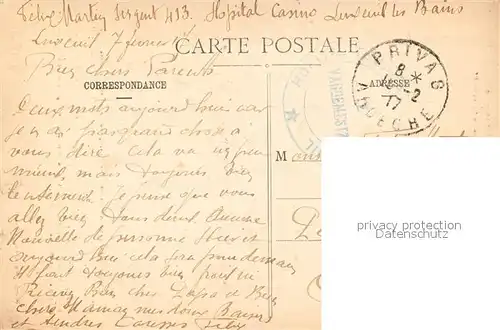 Félix Martin Sergent 413. Hopital Casino Luxeuil les Bains
Luxeuil 7 fevrier 17
CARTE POSTALE
Bien chers Parents
CORRESPONDANCE
ADRESSE
PRIVAS
8
-2
17
ARDECHE
Deux mots aujourd'hui car
je n'ai pas grand chose à
vous dire Cela va un peu
mieux mais toujours bien
lentement. Je pense que vous
allez bien tous deux Aucune
Nouvelle de personne hier et
aujourd'hui cela sera pour demain
Il fait toujours bien froid ici
Rien Bien cher Papa et Bien
chère Maman mes doux Baisers
et tendres Caresses Félix
M
privacy protection
www.oldthing.de